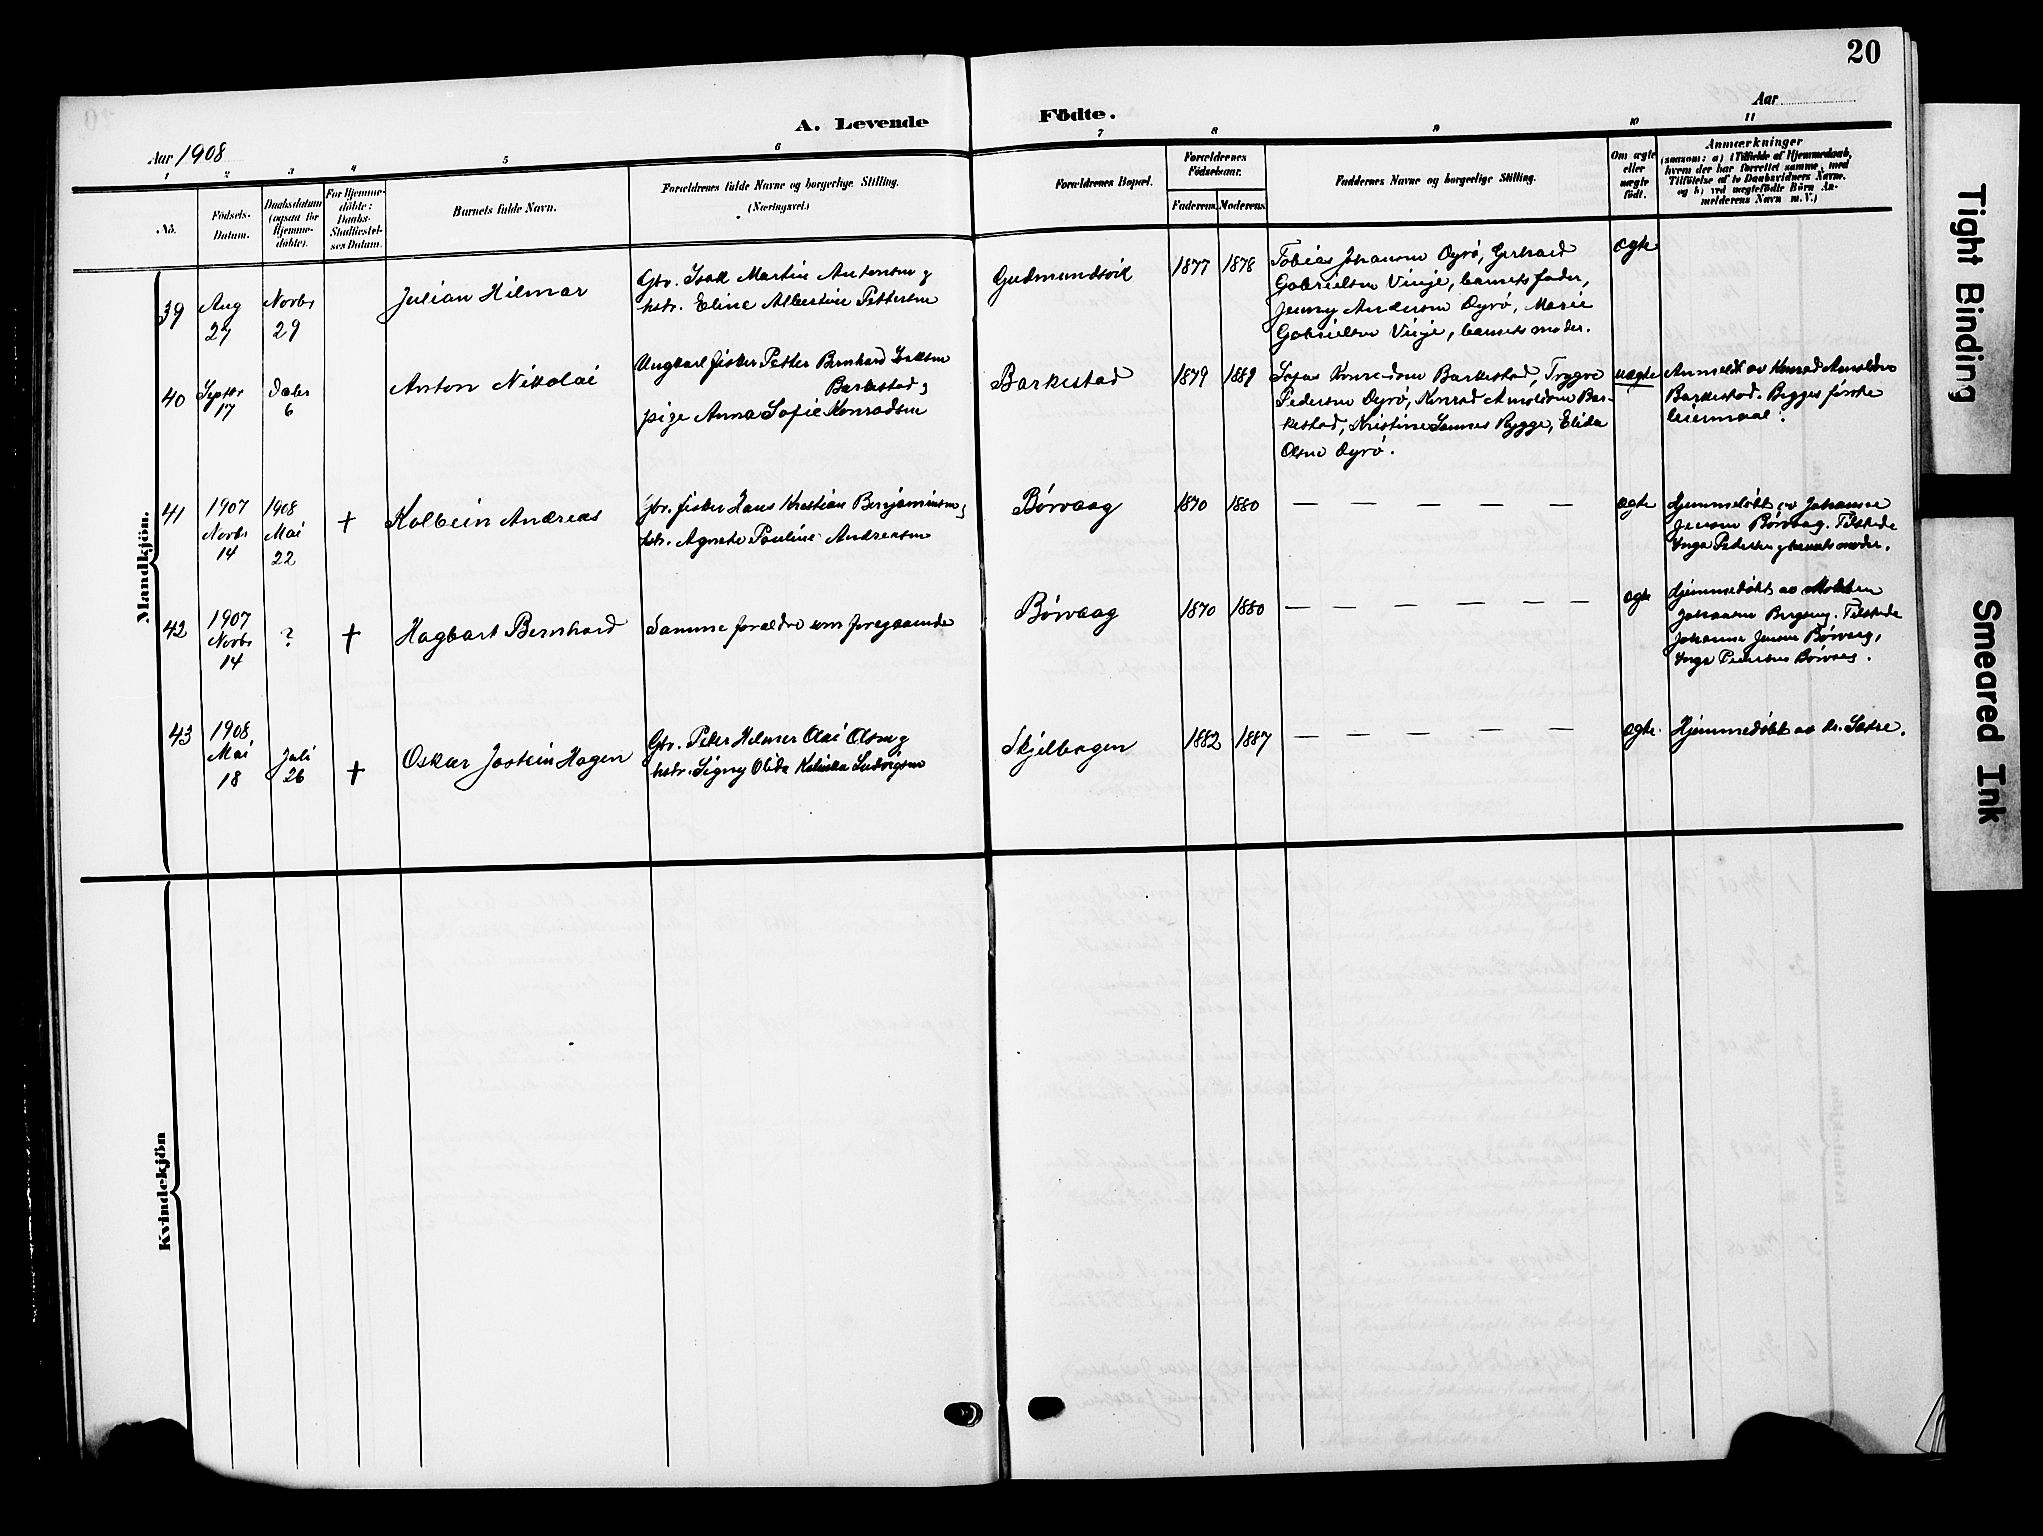 20
Aar
A. Levende Födte.
Aar 1908
1 2 3 4 5 6 7 8 9 10 11
No.
Födsels-
Datum.
Daabsdatum
(ogsaa for
Hjemme-
döbte).
For Hjemme-
döbte:
Daabs-
Stadfæstel-
ses Datum.
Barnets fulde Navn.
Forældrenes fulde Navne og borgerlige Stilling.
(Næringsvei.)
Forældrenes Bopæl.
Forældrenes
Födselsaar.
Faderens. Moderens.
Faddernes Navne og borgerlige Stilling.
Om ægte
eller
uægte
födt.
Anmærkninger
(saasom: a) i Tilfælde af Hjemmedaab,
hvem der har forrettet samme, med
Tilföielse af to Daabsvidners Navne,
og b) ved uægtefödte Börn An-
melderens Navn m. V.)
Mandkjön.
39
Aug
27
Novbr
29
Julian Hilmar
Gbr. Isak Martin Antonsen og
hstr. Eline Albertine Pettersen
Gudmundsvik
1877 1878
Tobias Johansen Øyrø, Gerhard
Gabrielsen Vinje, barnets fader,
Jenny Andersen Øyrø, Marie
Gabrielsen Vinje, barnets moder.
ægte
40
Septbr
17
Decbr
6
Anton Nikolai
Ungkarl fisker Petter Bernhard
Barkestad og
pige Anna Sofie Konradsen
Barkestad
1879 1889
Barkestad, Trygve
Pedersen Øyrø, Konrad Arnoldsen Bar-
kestad, Kristine Rygge, Elida
Olsen Øyrø.
uægte
Anmeldt av Konrad Arnoldsen
Barkestad. Begges første
leiermaal.
41
1907
Novbr
14
1908
Mai
22
+
Kolbein Andreas
gbr. fisker Hans Kristian Benjaminsen og
hstr. Agnete Pauline Andreasen
Børvaag
1870 1880
— — — — —
ægte
Hjemmedøbt av Johanne
Jensen Børvaag. Tilstede
Inga Pedersen og barnets moder.
42
1907
Novbr
14
?
+
Hagbart Bernhard
Samme forældre som foregaaende
Børvaag
1870 1880
— — — — —
ægte
Hjemmedøbt av
Johansen Tilstede
Johanne Jensen Børvaag,
Inga Pedersen Børvaag.
43
1908
Mai
18
Juli
26
+
Oskar Jostein Hagen
Gbr. Peter Hilmer Olai Olsen og
hstr. Signy Olida Ludvigsen
Skjelbogen
1882 1887
— — — — —
ægte.
Hjemmedøbt av dr. Sætre.
Kvindekjön
Tight Binding
Smeared Ink